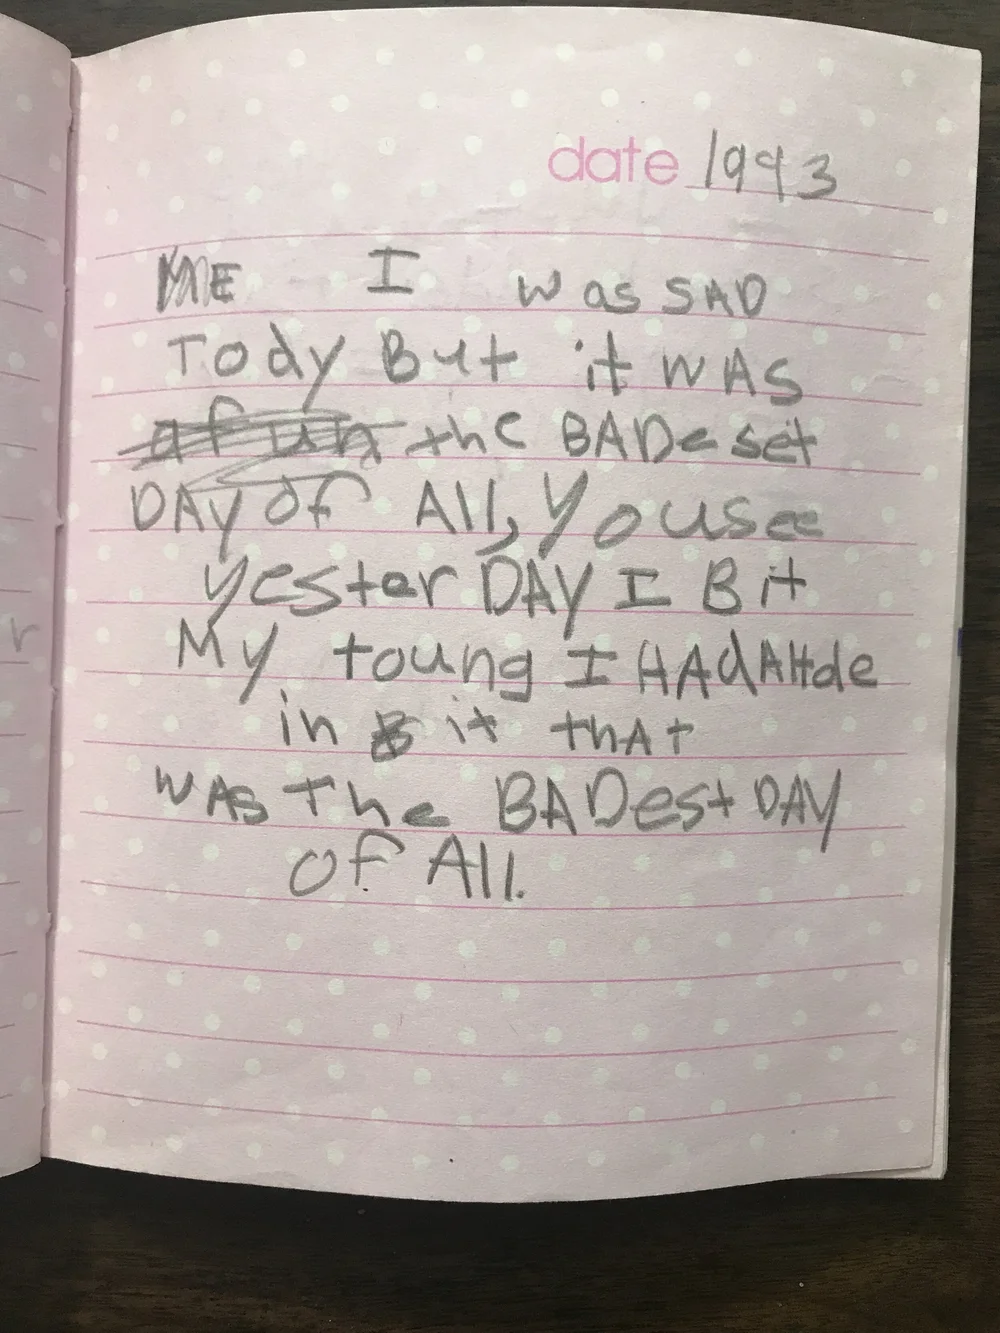 date 1993
ME I was SAD
TODy BuT it WAS
afun the BADeset
DAy of All, yousee
yesterDAY I Bit
My toung I HADAHde
in it thAt
WAS The BADest DAY
of All.
r